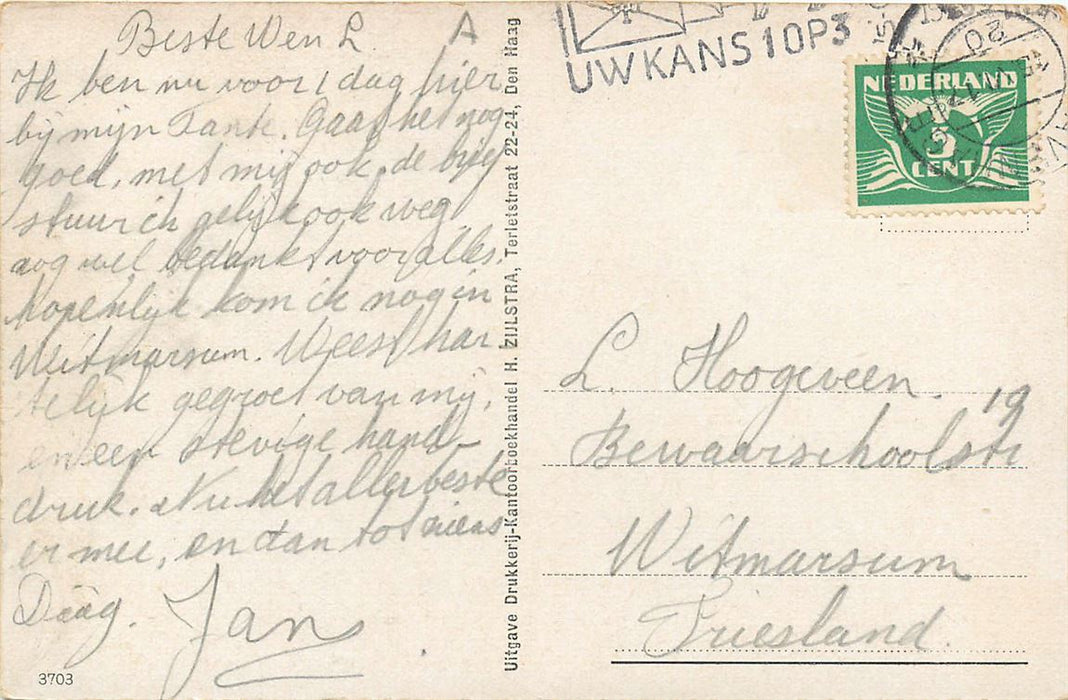 Beste Wen L. A
Ik ben nu voor 1 dag hier
bij mijn Tante. Gaat het nog
goed, met mij ook, de brief
stuur ik gelijk ook weg
nog wel bedankt voor alles.
hopenlijk kom ik nog in
Witmarsum. Weest har
telijk gegroet van mij,
en een stevige hand-
druk. Nu het allerbeste
er mee, en dan tot ziens
Daag. Jan
3703
Uitgave Drukkerij-Kantoorboekhandel H. ZIJLSTRA, Terletstraat 22-24, Den Haag
UW KANS 1 OP 3
NEDERLAND
5
CENT
L. Hoogeveen.
Bewaarschoolstr 19
Witmarsum
Friesland.